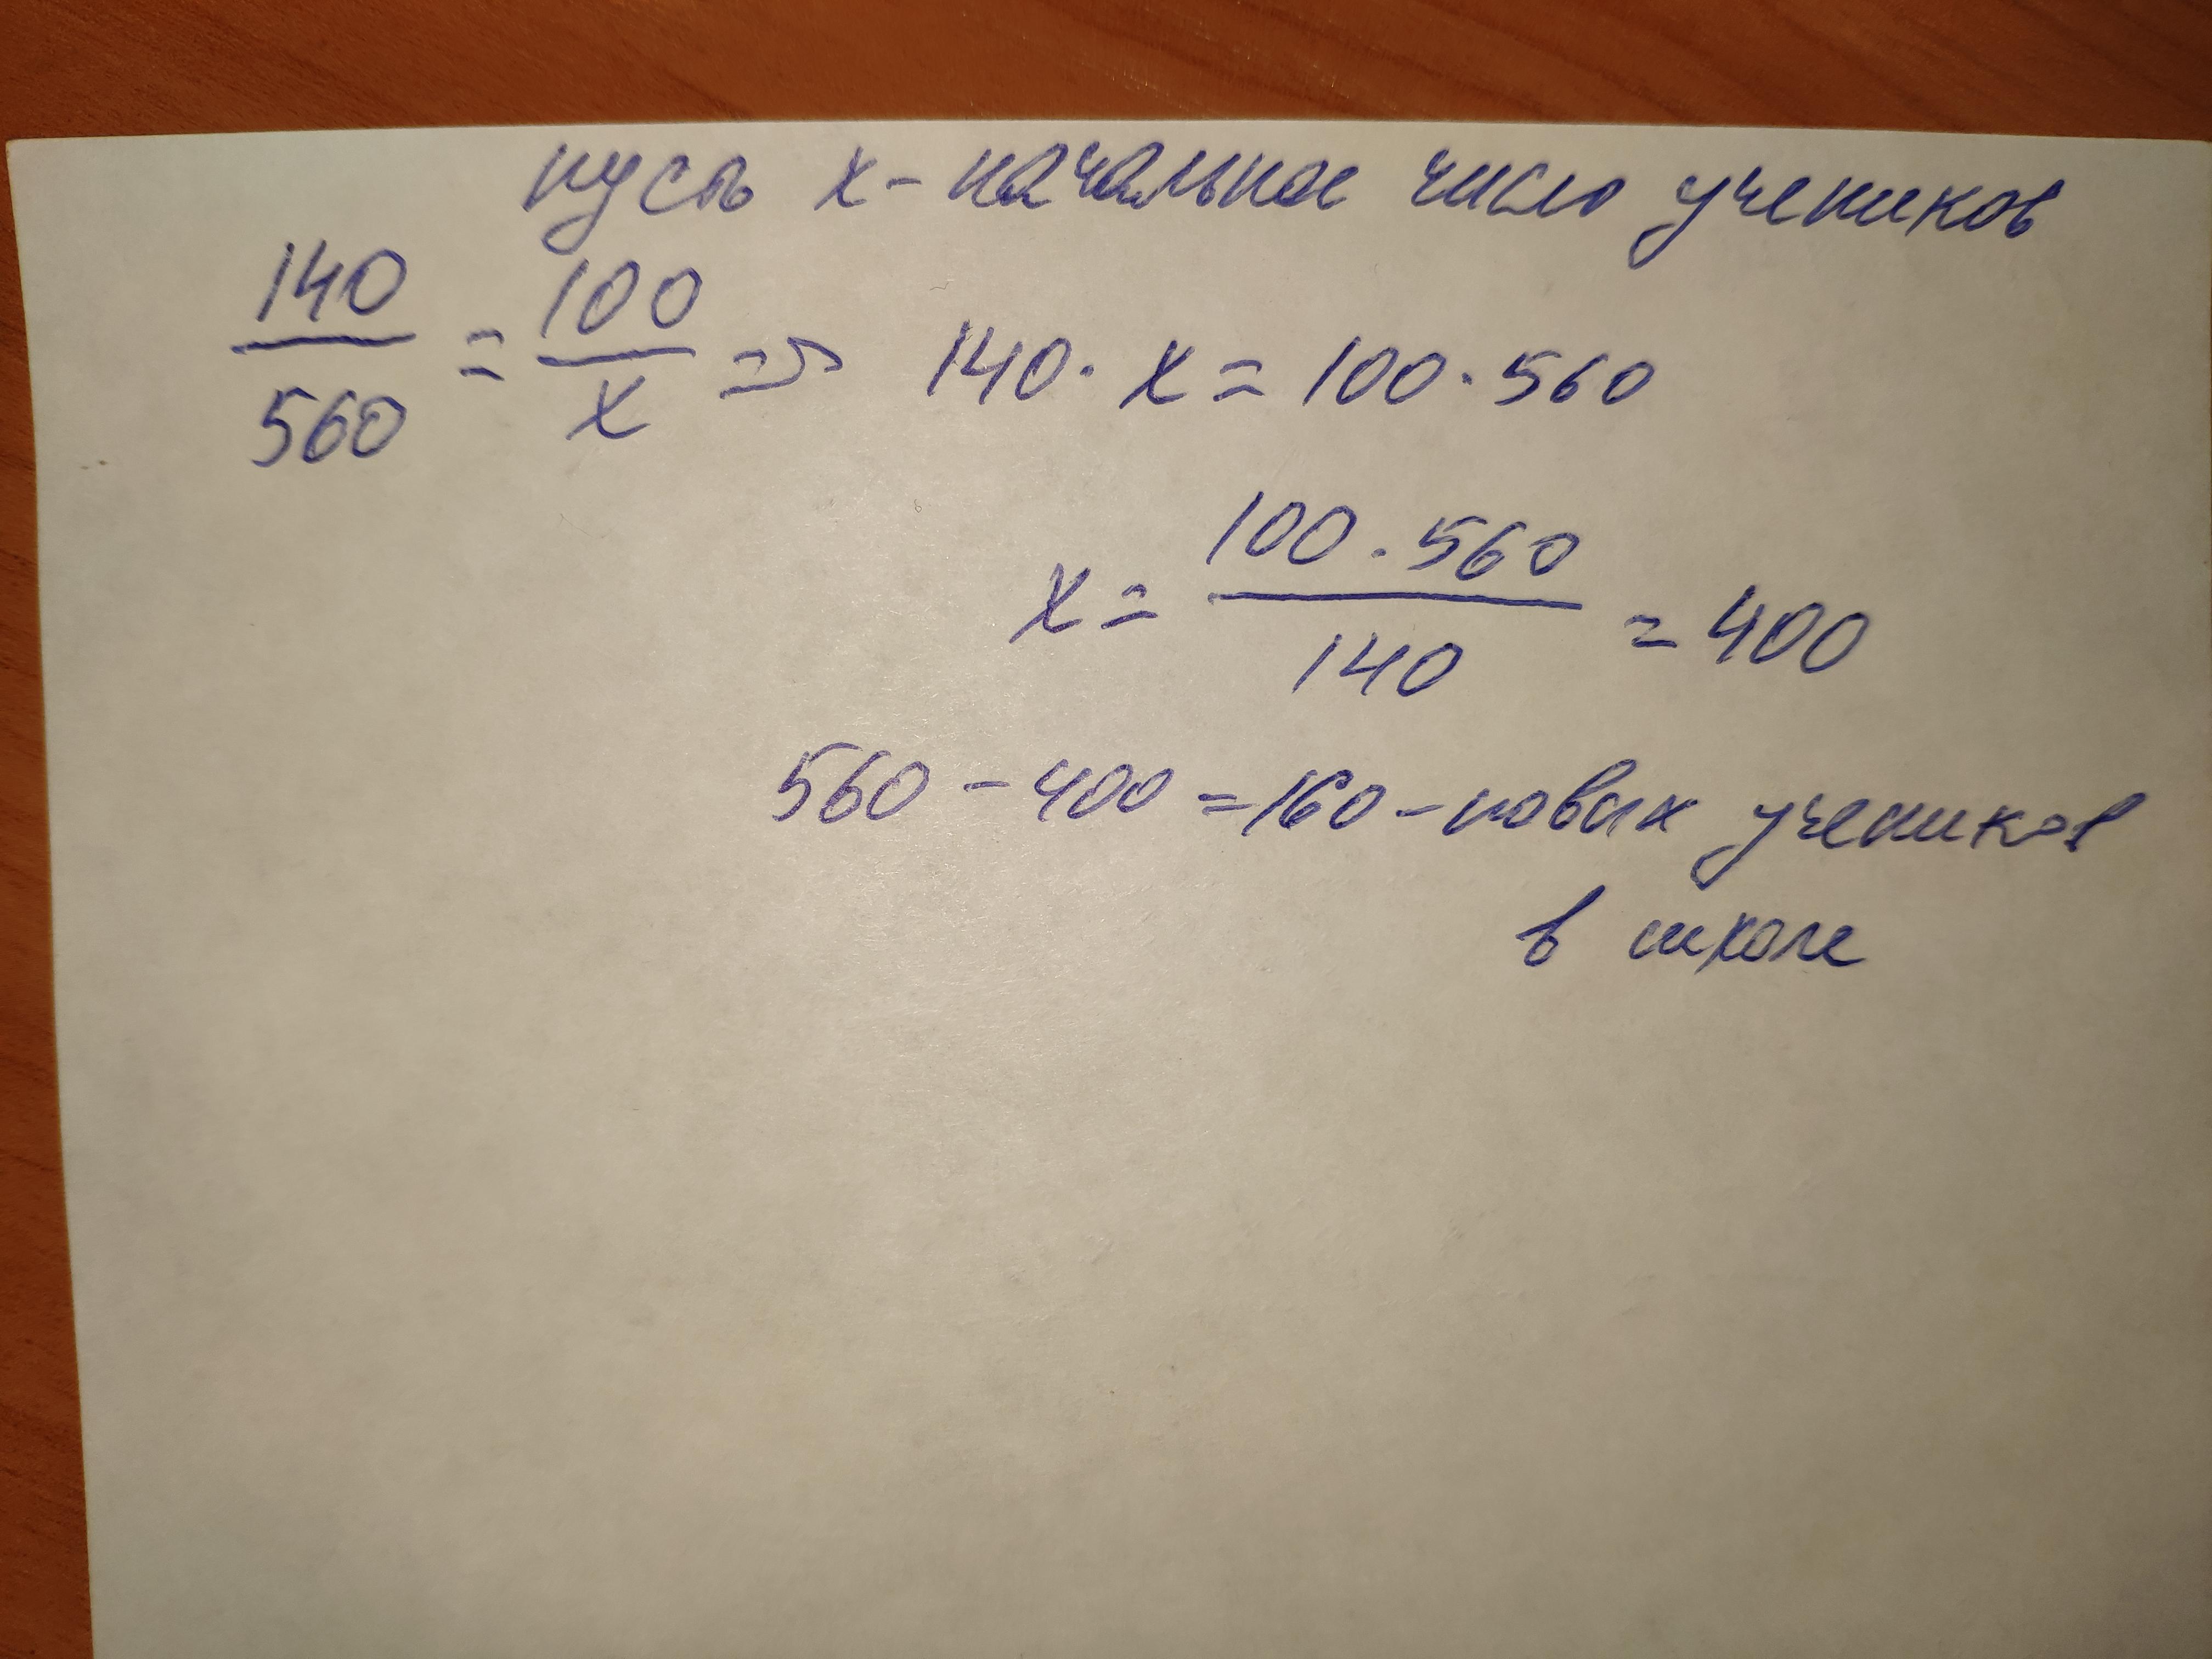 пусть x - начальное число учеников
140/560 = 100/x => 140 · x = 100 · 560
x = 100 · 560/140 = 400
560 - 400 = 160 - новых учеников
в школе